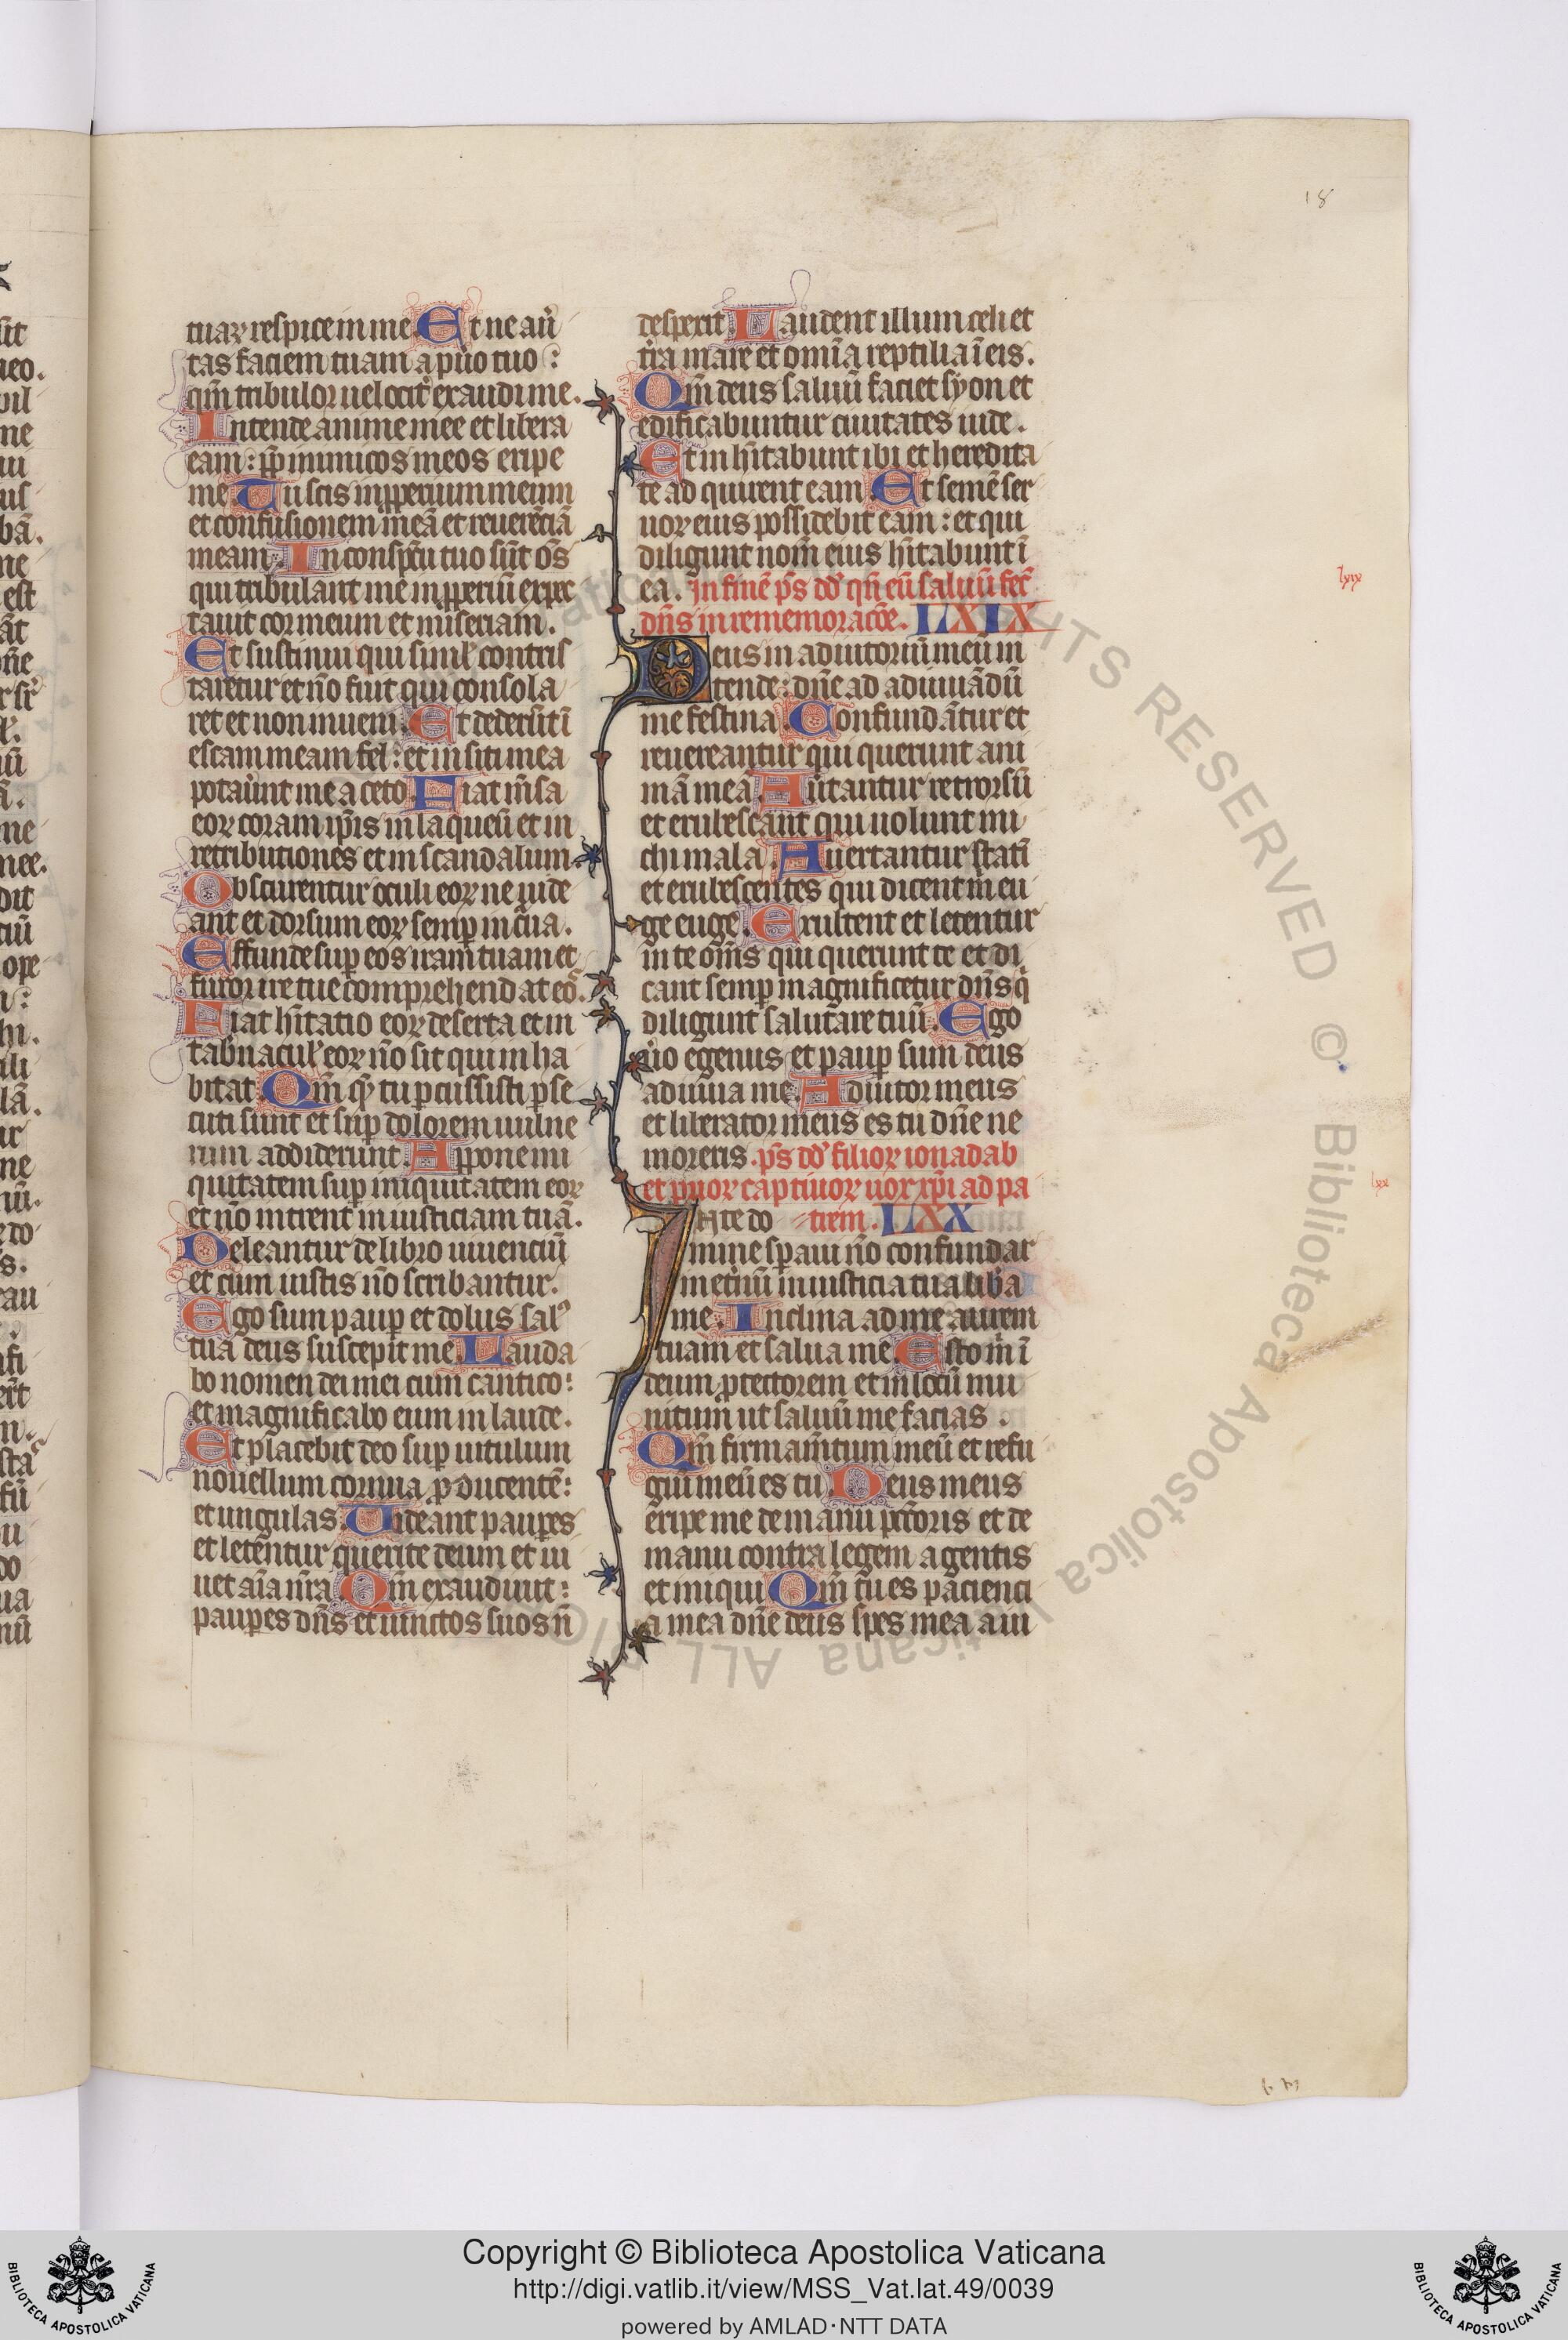 18
tuaꝝ respice in me. Et ne au̾
tas faciem tuam a pu̾o tuo :
qm̄ tribulor uelocit̾ exaudi me.
Intende anime mee et libera
eam : ꝓp̄ inimicos meos eripe
me. Tu scis inꝓperium meum
et confusionem meā et reuerēciā
meam. In conspc̄u tuo sūt om̄s
qui tribulant me inꝓperiū expec
tauit cor meum et miseriam.
Et sustinui qui simul̾ contris
taretur et nō fuit qui consola
ret et non inueni. Et dederūt ī
escam meam fel : et in siti mea
potau̾unt me aceto. Fiat m̄sa
eoꝝ coram ip̄is in laqueū et in
retributiones et in scandalum.
Obscurentur oculi eoꝝ ne uide
ant et dorsum eoꝝ semꝑ incūa.
Effunde suꝑ eos iram tuam et
furor ire tue comprehendat eos.
Fiat hītatio eoꝝ deserta et in
tabn̄acul̾ eoꝝ nō sit qui inha
bitat. Qm̄ quē tu ꝑcussisti ꝑse
cuti sunt et suꝑ dolorem uulne
rum addiderunt. Appone ini
quitatem suꝑ iniquitatem eoꝝ
et nō intrent in iusticiam tuā.
Deleantur de libro uiuenciū
et cum iustis nō scribantur.
Ego sum pauꝑ et dolus sal᷒
tua deus suscepit me. Lauda
bo nomen dei mei cum cantico :
et magnificabo eum in laude.
Et placebit deo suꝑ uitulum
nouellum cornua ꝓducentē :
et ungulas. Uideant pauꝑes
et letentur querite deum et ui
uet aīa ur̄a. Qm̄ exaudiuit :
pauꝑes dn̄s et uinctos suos n̄
despexit. Laudent illum celi et
tr̄a mare et omīa reptilia ī eis.
Qm̄ deus saluū faciet syon et
edificabuntur ciuitates iude.
Et inhītabunt ibi et heredita
te adquirent eam. Et semē ser
uoꝝ eius possidebit eam : et qui
diligunt nom̄ eius hītabunt ī
ea. In finē p̄s dd̾ qn̄ eū saluū fec̄
dn̄s in rememoracōe. LXIX
lxix
Deus in adiutoriū meū in
tende : dn̄e ad adiuuādū
me festina. Confundātur et
reuereantur qui querunt ani
mā meā. Au̾tantur retrorsū
et erubescant qui uolunt mi
chi mala. Auertantur statī
et erubescentes qui dicent m̄ eu
ge euge. Exultent et letentur
in te om̄s qui querunt te et di
cant semꝑ magnificetur dn̄s q̄
diligunt salutare tuū. Ego
u̾o egenus et pauꝑ sum deus
adiuua me. Adiutor meus
et liberator meus es tu dn̄e ne
moreris. p̄s dd̾ filioꝝ ionadab
et prioꝝ captiuoꝝ uox xp̄i ad pa
lxx
IN te do trem. LXX
mine sꝑaui nō confundar
in etn̄ū in iusticia tua lib̾a
me. Inclina ad me aurem
tuam et salua me. Esto m̄ ī
deum ꝓtectorem et in locū mu
nitum ut saluū me facias.
Qm̄ firmam̄tum meū et refu
giū meū es tu. Deus meus
eripe me de manu pc̄coris et de
manu contra legem agentis
et iniqui. Qm̄ tu es pacienci
a mea dn̄e deus spes mea a iu
Copyright © Biblioteca Apostolica Vaticana
http://digi.vatlib.it/view/MSS_Vat.lat.49/0039
powered by AMLAD·NTT DATA
BIBLIOTECA APOSTOLICA VATICANA
BIBLIOTECA APOSTOLICA VATICANA